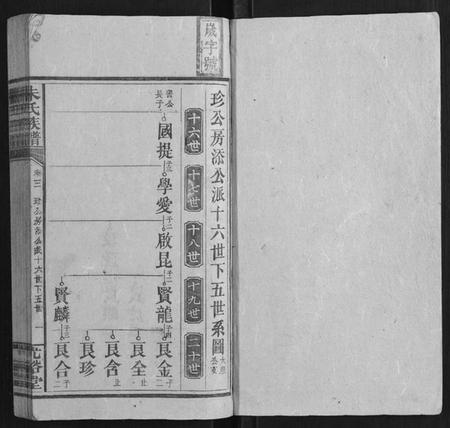 歲字號
珍公房添公派十六世下五世系圖
十六世
十七世
十八世
十九世
二十世
長子
國提
學愛
啟昆 子二
賢龍
賢麟
良金 子二
良全
良含
良珍
良合 子二
朱氏族譜
卷三 珍公房添公派十六世下五世 一